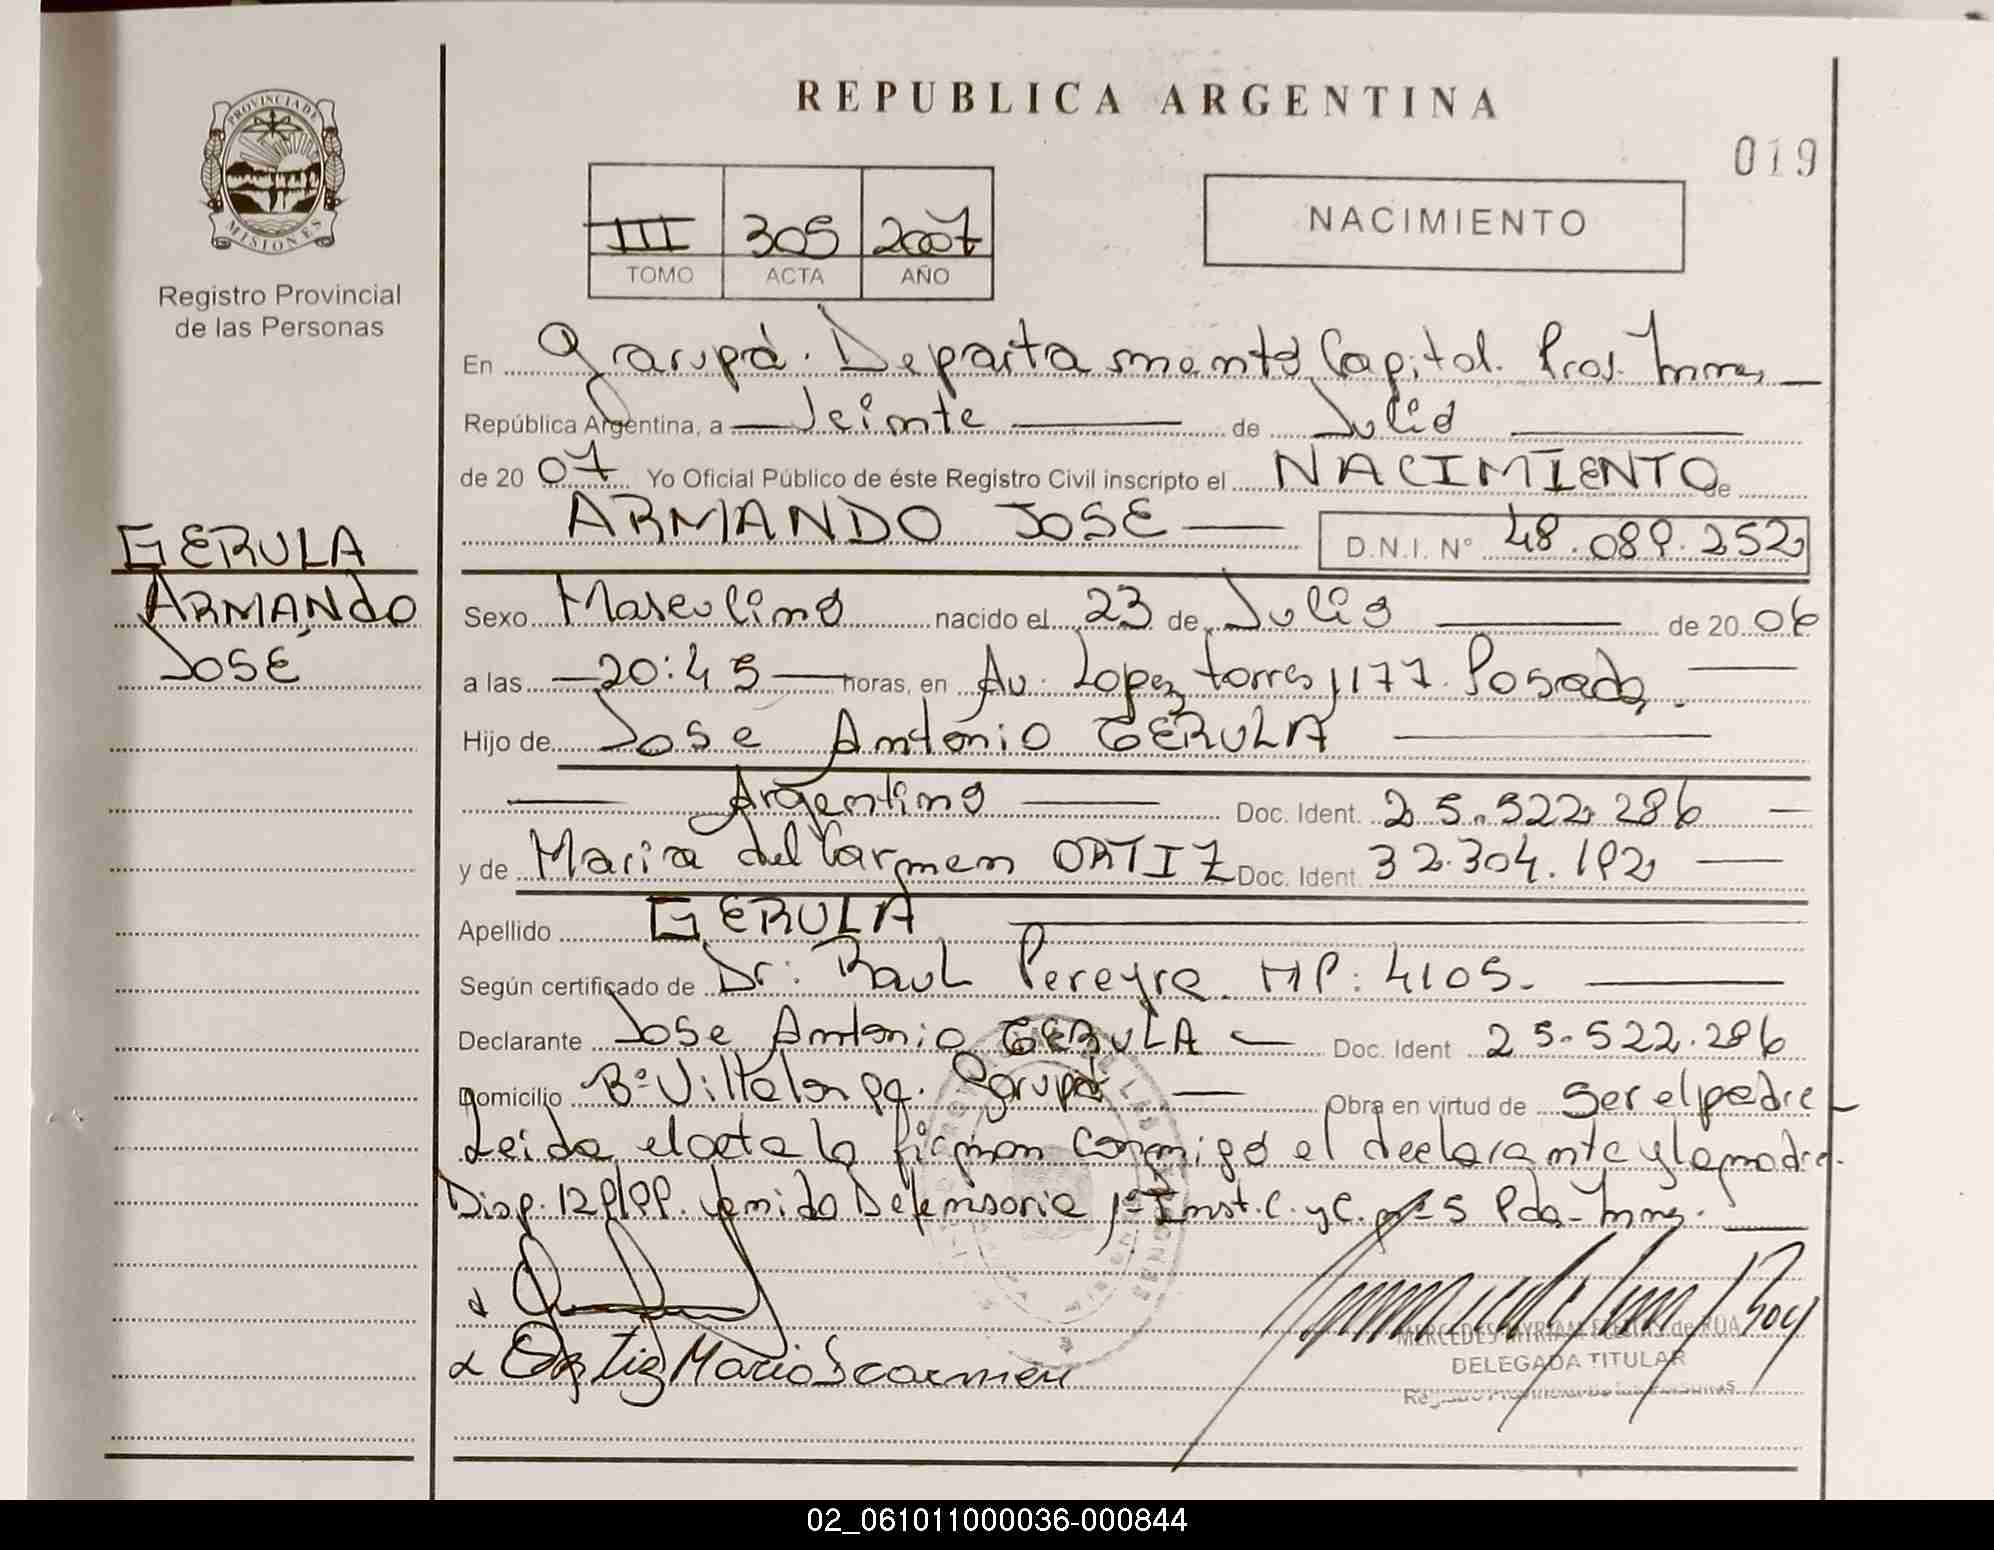 REPUBLICA ARGENTINA
019
PROVINCIA DE
MISIONES
Registro Provincial
de las Personas
III 305 2007
TOMO ACTA AÑO
NACIMIENTO
En Garupá. Departamento Capital. Pros. Mnes
República Argentina, a Veinte de Julio
de 20 07 Yo Oficial Público de éste Registro Civil inscripto el NACIMIENTO de
ARMANDO JOSE D.N.I. N° 48.089.252
GERULA
ARMANDO
JOSÉ
Sexo Masculino nacido el 23 de Julio de 20 06
a las 20:45 horas, en Av. Lopez torres 1177. Posadas
Hijo de Jose Antonio GERULA
Argentino Doc. Ident. 25.522.286
y de Maria del Carmen ORTIZ Doc. Ident. 32.304.192
Apellido GERULA
Según certificado de Dr: Raul Pereyra. MP: 4105.
Declarante Jose Antonio GERULA Doc. Ident 25.522.286
Domicilio B° Villalonga. Garupá Obra en virtud de Ser el padre
Leida el acta la firman conmigo el declarante y la madre.
Disp. 129/99. Venido Defensoria 1° Inst. C. y C. n° 5 Pdas-Mnes.
Ortiz Maria d carmen
MERCEDES MYRIAM de RUA
DELEGADA TITULAR
Registro Provincial de las Personas
02_061011000036-000844